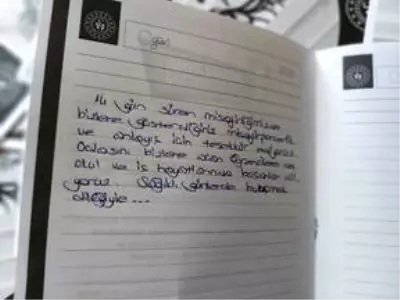 14 gün süren misafirliğimizde
bizlere gösterdiğiniz misafirperverlik
ve anlayış için teşekkür ediyoruz.
bizlere
okul ve iş hayatlarında başarılar dili-
yoruz. Sağlıklı günlerde buluşmak
dileğiyle...